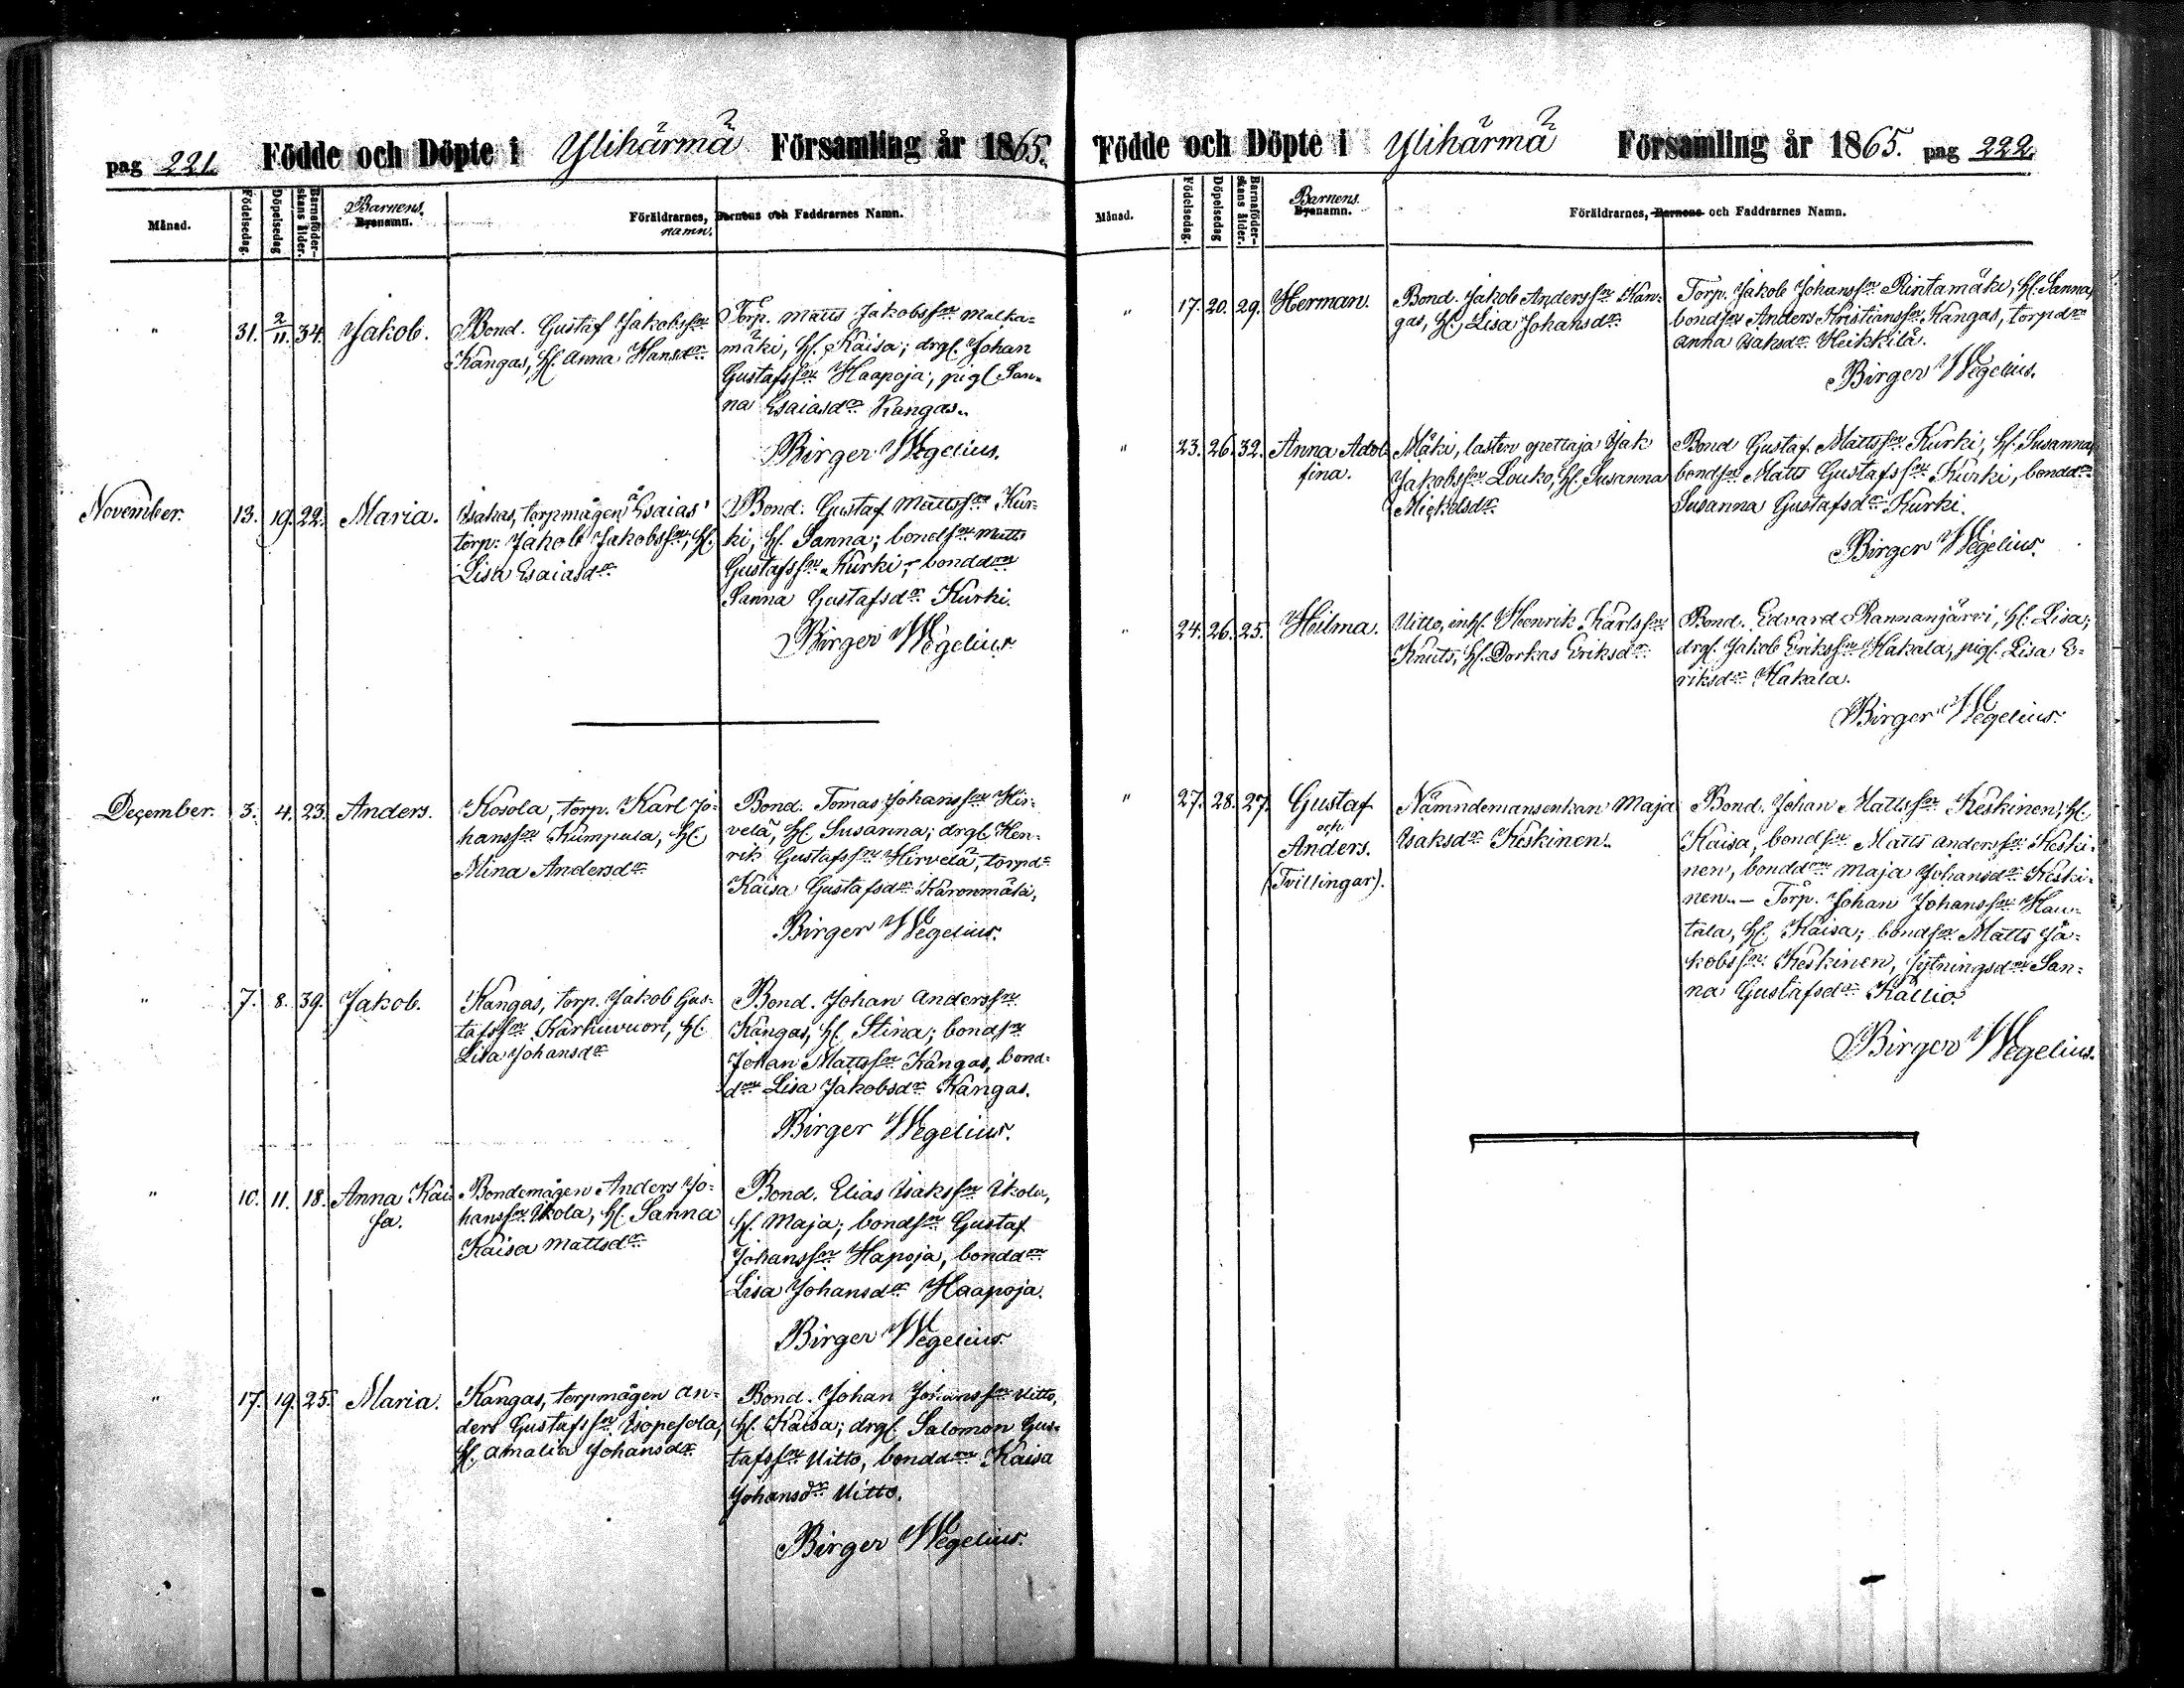 pag 221. Födde och Döpte i Ylihärmä Församling år 1865.
Månad.
Födelsedag.
Döpelsedag
Barnaföder-
skans ålder.
Barnens.
Byanamn.
Föräldrarnes, Barnens och Faddrarnes Namn.
namn.
" 31. 2/11 34. Jakob.
Bond. Gustaf Jakobssn
Kangas, hl. Anna Hansdr
Torp. Matts Jakobssn Malka-
mäki, hl. Kaisa; drgl. Johan
Gustafssn Haapoja; pigl San-
na Esaiasdr Kangas.
Birger Wegelius.
November. 13. 19. 22. Maria.
Isakas, torpmågen å Esaias'
torp: Jakob Jakobssn, hl.
Lisa Esaiasdr
Bond. Gustaf Mattssn Kur-
ki, hl. Sanna; bondsn Matts
Gustafssn Kurki; bonddn
Sanna Gustafsdr Kurki.
Birger Wegelius.
December. 3. 4. 23. Anders.
Kosola, torp. Karl Jo-
hanssn Kumpula, hl.
Mina Andersdr
Bond. Tomas Johanssn Hir-
velä, hl. Susanna; drgl. Hen-
rik Gustafssn Hirvelä, torpdr
Kaisa Gustafsdr
Birger Wegelius.
" 7. 8. 39. Jakob.
Kangas, torp. Jakob Gus-
tafssn Karhuvuori, hl.
Lisa Johansdr
Bond. Johan Anderssn
Kangas, hl. Stina; bondsn
Johan Mattssn Kangas, bond-
dn Lisa Jakobsdr Kangas.
Birger Wegelius.
" 10. 11. 18. Anna Kai
sa.
Bondemågen Anders Jo-
hanssn Ikola, hl. Sanna
Kaisa Mattsdr
Bond. Elias Isakssn Ikola,
hl. Maja; bondsn Gustaf
Johanssn Hapoja, bonddn
Lisa Johansdr Haapoja.
Birger Wegelius.
" 17. 19. 25. Maria.
Kangas, torpmågen An-
ders Gustafssn Isopesola,
hl. Amalia Johansdr
Bond. Johan Johanssn Uitto,
hl. Kaisa; drgl. Salomon Gus-
tafssn Uitto, bonddn Kaisa
Johansdr Uitto.
Birger Wegelius.
Födde och Döpte i Ylihärmä Församling år 1865. pag 222.
Månad.
Födelsedag.
Döpelsedag
Barnaföder-
skans ålder.
Barnens.
Byanamn.
Föräldrarnes, Barnens och Faddrarnes Namn.
" 17. 20. 29. Herman.
Bond. Jakob Anderssn Kan-
gas, hl. Lisa Johansdr
Torp. Jakob Johanssn Rintamäki, hl. Sanna,
bondsn Anders Kristianssn Kangas, torpdn
Anna Isaksdr Heikkilä.
Birger Wegelius.
" 23. 26. 32. Anna Adol-
fina.
Mäki, lasten opettaja Jak
Jakobssn Louko, hl. Susanna
Mickelsdr
Bond Gustaf Mattssn Kurki, hl. Susanna,
bondsn Matts Gustafssn Kurki, bonddn
Susanna Gustafsdr Kurki.
Birger Wegelius.
" 24. 26. 25. Hilma.
Uitto, inhl. Henrik Karlssn
Knuts, hl. Dorkas Eriksdr
Bond. Edvard Rannanjärvi, hl. Lisa;
drgl. Jakob Erikssn Hakala, pigl. Lisa E-
riksdr Hakala.
Birger Wegelius.
" 27. 28. 27. Gustaf
och
Anders.
(Tvillingar).
Nämndemansenkan Maja
Isaksdr Keskinen.
Bond. Johan Mattssn Keskinen, hl.
Kaisa, bondsn Matts Anderssn Keski-
nen, bonddn Maja Johansdr Keski-
nen. — Torp. Johan Johanssn Hau-
tala, hl. Kaisa; bondsn Matts Ja-
kobssn Keskinen, sytningsdn San-
na Gustafsdr Kallio.
Birger Wegelius.